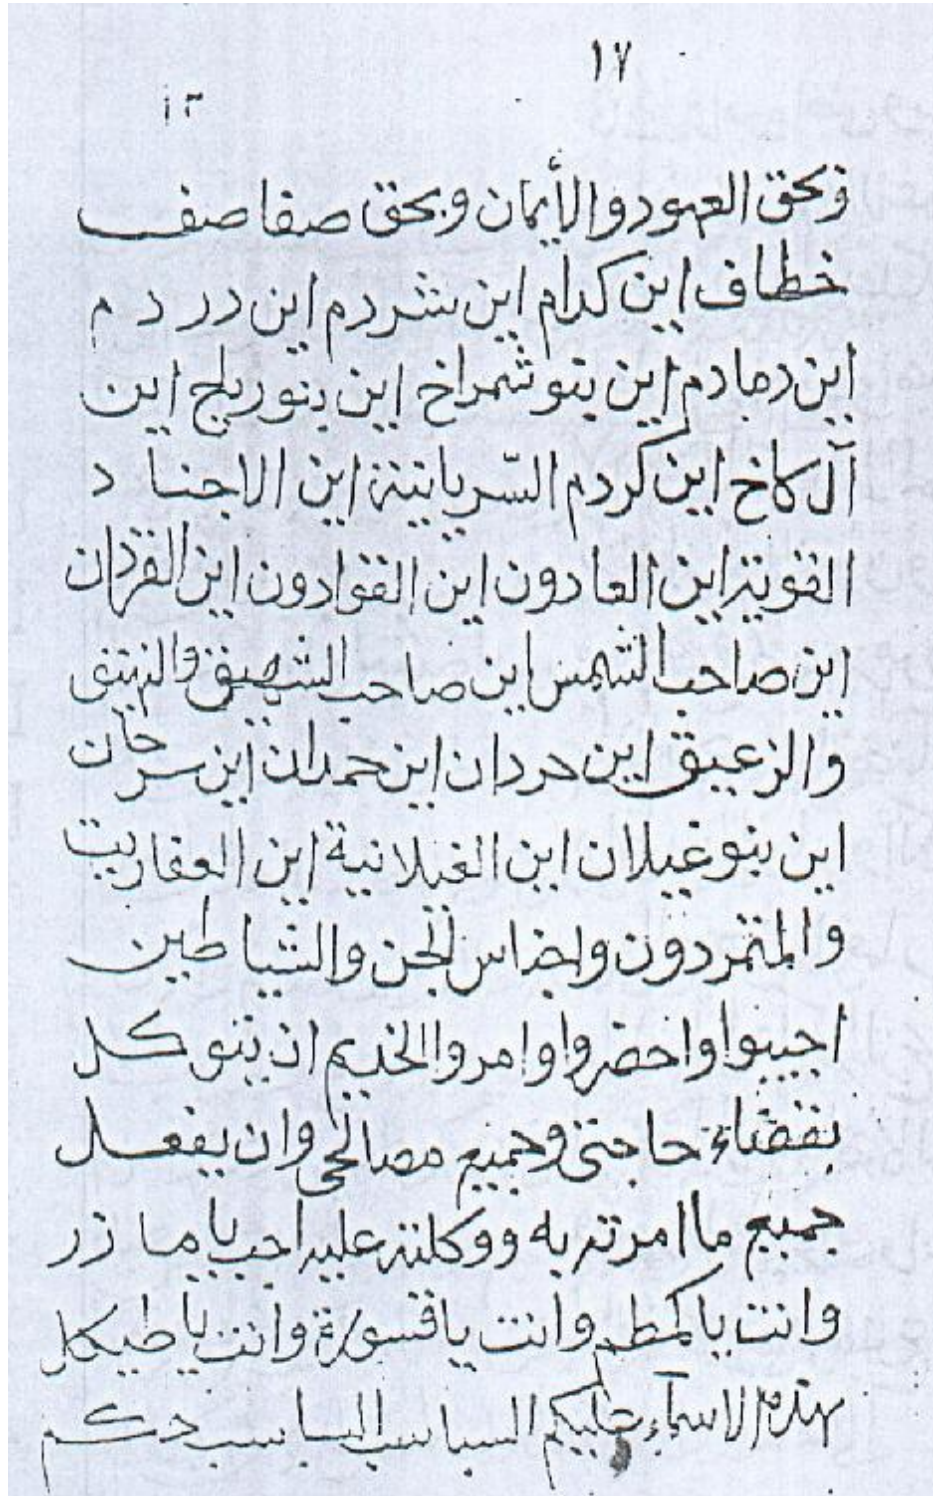 ١٧
١٣
وبحق العهود والأيمان وبحق صفا صف
خطاف اين كدام اين شردم اين در د م
اين دمادم اين بنو شمراخ اين بنو رياح اين
آل كاخ اين كردم السّريانية اين الاجناد
القوية اين العادون اين القوادون اين القردان
اين صاحب الشمس اين صاحب الشهيق والنهيق
والزعيق اين حردان اين حمدان اين سرحان
اين بنو غيلان اين الغيلانية اين العفاريت
والمتمردون واجناس الجن والشياطين
اجيبوا واحضروا وامروا الخديم ان يتوكل
بقضاء حاجتى وجميع مصالحى وان يفعل
جميع ما امرته به ووكلته عليه اجب يا مازر
وانت يا كمطم وانت يا قسورة وانت يا طيكل
بهذه الاسمآء عليكم السباسب السباسب